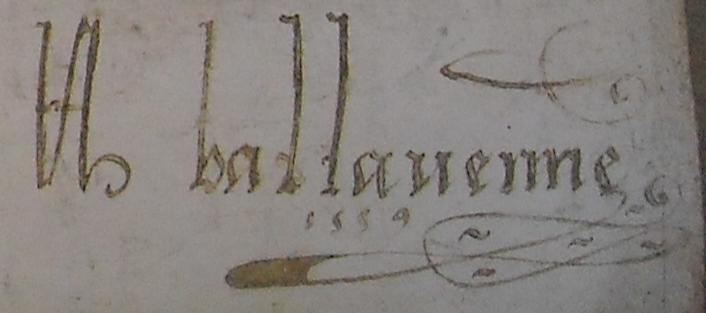 H ballauenne
1559